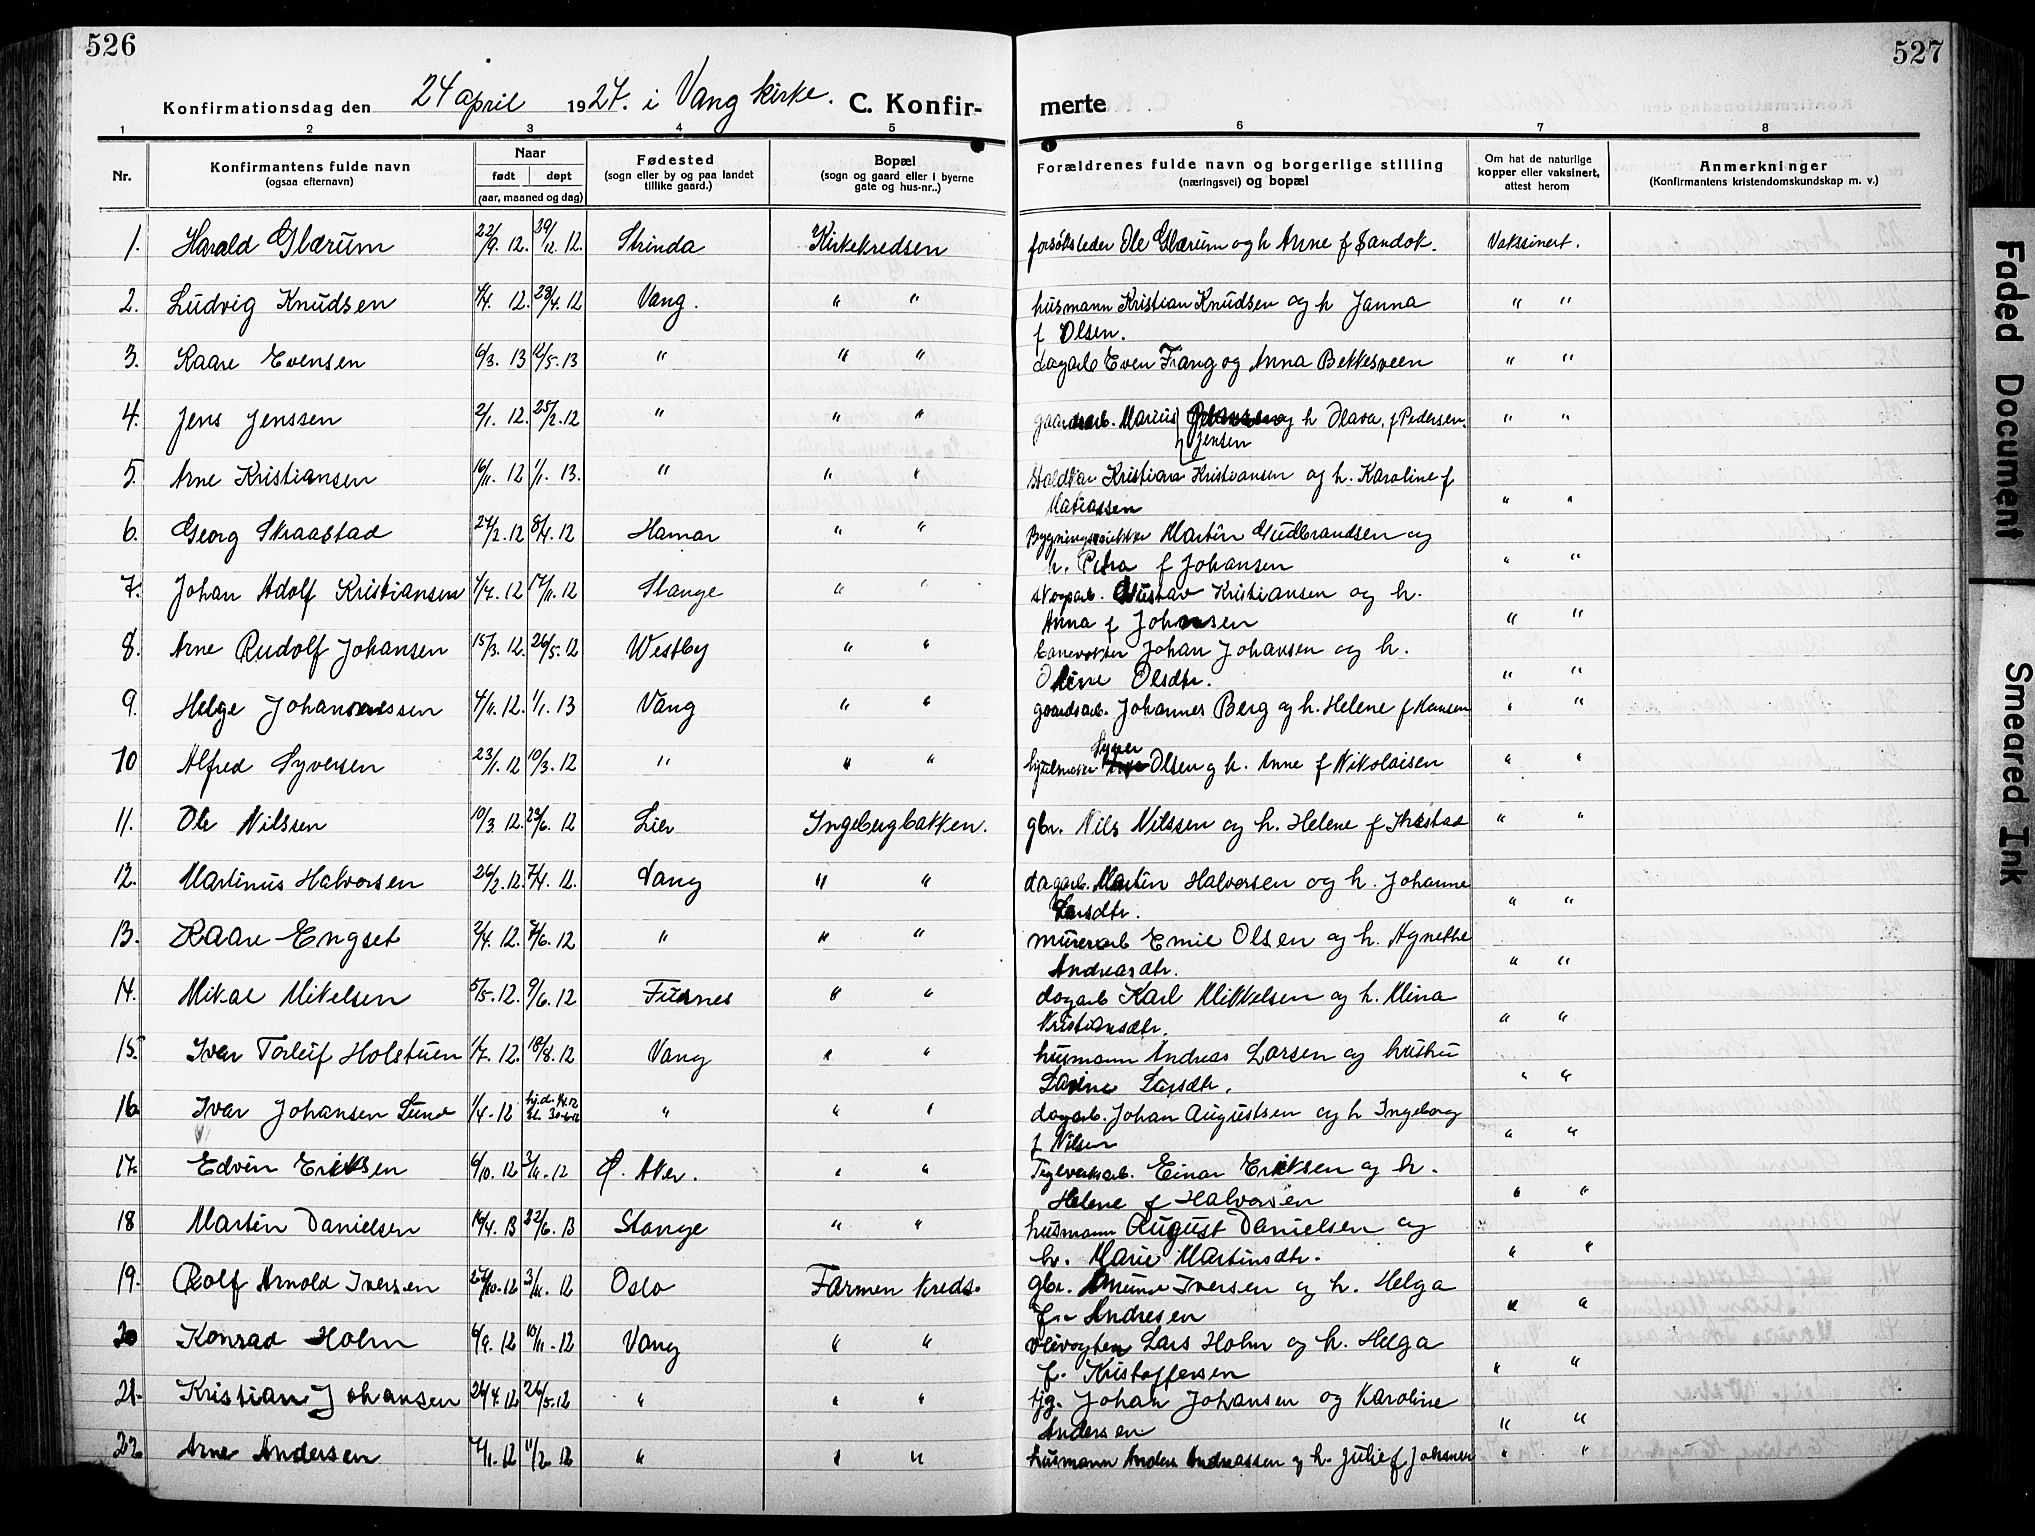 526
527
Konfirmationsdag den 24 april 1927. i Vang kirke. C. Konfirmerte
1 2 3 4 5 6 7 8
Nr. Konfirmantens fulde navn (ogsaa efternavn) Naar født døpt (aar, maaned og dag) Fødested (sogn eller by og paa landet tillike gaard.) Bopæl (sogn og gaard eller i byerne gate og hus-nr..) Forældrenes fulde navn og borgerlige stilling (næringsvei) og bopæl Om hat de naturlige kopper eller vaksinert, attest herom Anmerkninger (Konfirmantens kristendomskundskap m. v.)
1. Harald Glærum 22/9. 12. 30/12 12. Strinda Kirkekredsen forsøksleder Ole Glærum og h Anne f Sandok. Vaksinert.
2. Ludvig Knudsen 4/4. 12. 28/4. 12 Vang. " " husmann Kristian Knudsen og h Janna " "
f Olsen.
3. Kaare Evensen 6/3. 13 12/5. 13 " " " dagarb Even Frang og Anna Bekkesveen " "
4. Jens Jenssen 2/1. 12. 25/2. 12 " " " gaardsarb. Marius Jensen og h Olava, f Pedersen. " "
5. Arne Kristiansen 16/11. 12 1/1. 13. " " " Kristian Kristiansen og h. Karoline f
Matiassen " "
6. Georg Skraastad 27/2. 12 8/4. 12 Hamar " " Martin Gudbrandsen og
h. Petra f Johansen " "
7. Johan Adolf Kristiansen 4/7. 12 17/11. 12 Stange " " skogsarb. Gustav Kristiansen og h.
Anna f Johansen " "
8. Arne Rudolf Johansen 15/3. 12. 26/5. 12 Westby " " banevokter Johan Johansen og h.
Oline Olsdtr. " "
9. Helge Johannessen 4/11. 12. 1/1. 13 Vang " " gaardsarb. Johannes Berg og h. Helene f Hansen " "
10 Alfred Syversen 23/1. 12 10/3. 12 " " " hjulmaker Syver Olsen og h. Anne f Nikolaisen " "
11. Ole Nilssen 10/3. 12. 23/6. 12 Lier Ingebergbakken. gbr. Nils Nilssen og h. Helene f " "
12. Martinus Halvorsen 26/2. 12. 7/4. 12. Vang " " dagarb. Martin Halvorsen og h. Johanne
Larsdtr. " "
13. Kaare Engset 2/4. 12. 2/6. 12 " " " murerarb Emil Olsen og h. Agnethe
Andreasdtr. " "
14. Mikal Mikelsen 5/5. 12. 9/6. 12 Furnes " " dagarb Karl Mikkelsen og h. Mina
Kristiansdtr. " "
15. Ivar Torleif Holstuen 1/7. 12. 18/8. 12 Vang " " husmann Andreas Larsen og hustru
Lovine Larsdtr. " "
16 Ivar Johansen Lund 1/4. 12 " " " dagarb. Johan Augustsen og h Ingeborg
f Nilsen " "
17. Edvin Eriksen 6/10. 12 3/11. 12 Ø. Aker. " " Teglverksarb. Einar Eriksen og h.
Helene f Halvorsen " "
18 Martin Danielsen 16/4. 13 22/6. 13 Stange " " husmann August Danielsen og
h. Marie Martinsdtr. " "
19. Rolf Arnold Iversen 27/10. 12 3/11. 12 Oslo Farmen kreds. gbr. Amund Iversen og h. Helga
f. Andresen " "
20 Konrad Holm 6/9. 12 10/11. 12 Vang " " veivogter Lars Holm og h. Helga
f. Kristoffersen " "
21. Kristian Johansen 24/4. 12 26/5. 12 " " " tjg. Johan Johansen og Karoline
Andersen " "
22 Arne Andersen 7/1. 12 11/2. 12 " " " husmann Anders Andreassen og h. Julie f Johansen " "
Faded Document
Smeared Ink